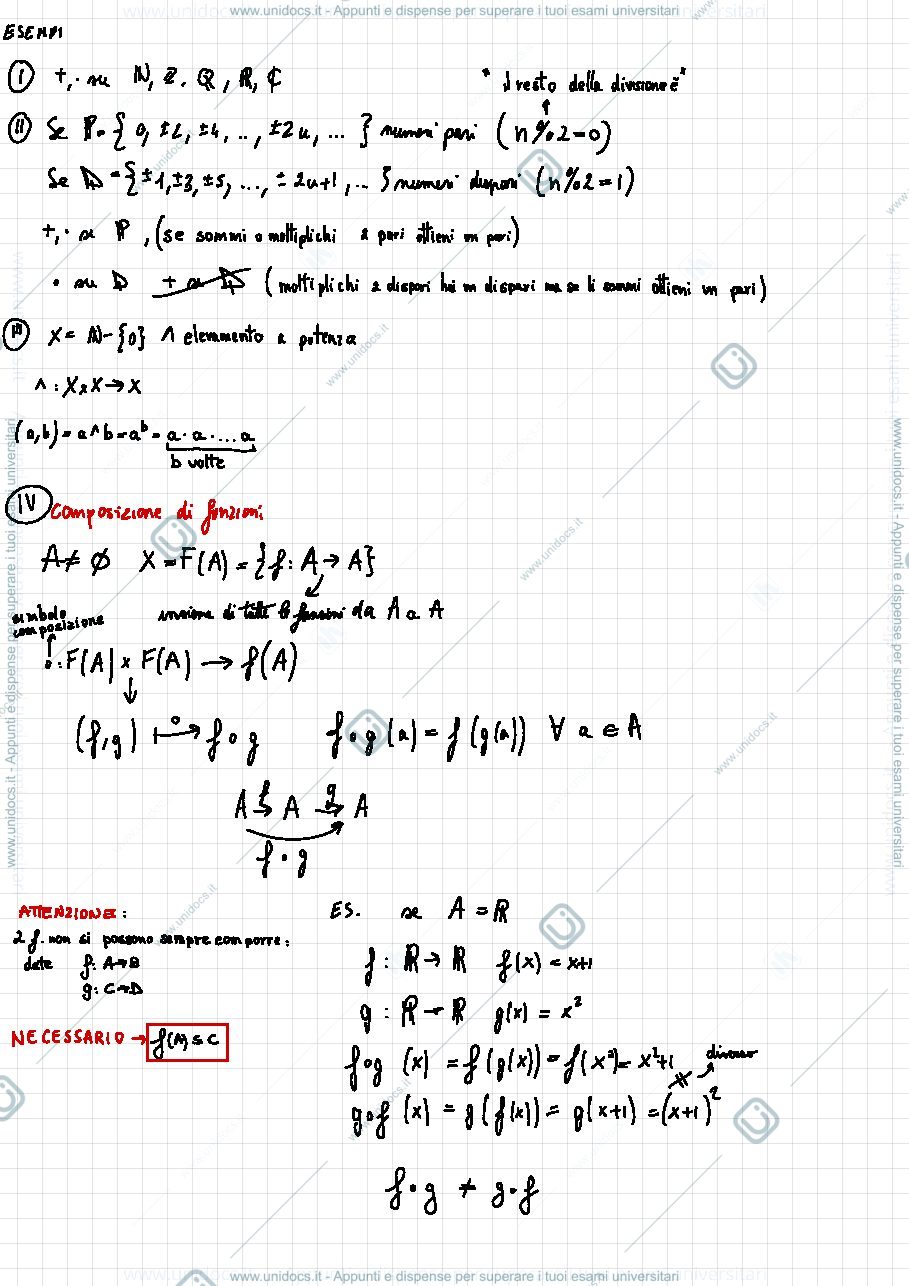 www.unidocs.it - Appunti e dispense per superare i tuoi esami universitari
ESEMPI
I +, · su ℕ, ℤ, ℚ, ℝ, ℂ " il resto della divisione è "
II Se P = { 0, ±2, ±4, .., ±2n, ... } numeri pari (n%2=0)
Se D = { ±1, ±3, ±5, ..., ±2n+1, ... } numeri dispari (n%2=1)
+, · su P, (se sommi o moltiplichi 2 pari ottieni un pari)
· su D + su D (moltiplichi 2 dispari hai un dispari ma se li sommi ottieni un pari)
III X = ℕ-{0} ∧ elemento a potenza
∧ : X x X → X
(a,b) = a∧b = a^b = a · a · ... a
b volte
IV Composizione di funzioni
A ≠ ∅ X = F(A) = { f: A → A }
insieme di tutte le funzioni da A a A
simbolo
composizione
∘ : F(A) x F(A) → f(A)
(f,g) ↦ f∘g f∘g (a) = f(g(a)) ∀ a ∈ A
∘
A → A → A
f g
f∘g
ATTENZIONE:
2 f. non si possono sempre comporre:
date f: A→B
g: C→D
NECESSARIO → f(A) ⊆ C
ES. se A = ℝ
f : ℝ → ℝ f(x) = x+1
g : ℝ → ℝ g(x) = x²
f∘g (x) = f(g(x)) = f(x²) = x²+1
≠ → diverso
g∘f (x) = g(f(x)) = g(x+1) = (x+1)²
f∘g ≠ g∘f
www.unidocs.it - Appunti e dispense per superare i tuoi esami universitari